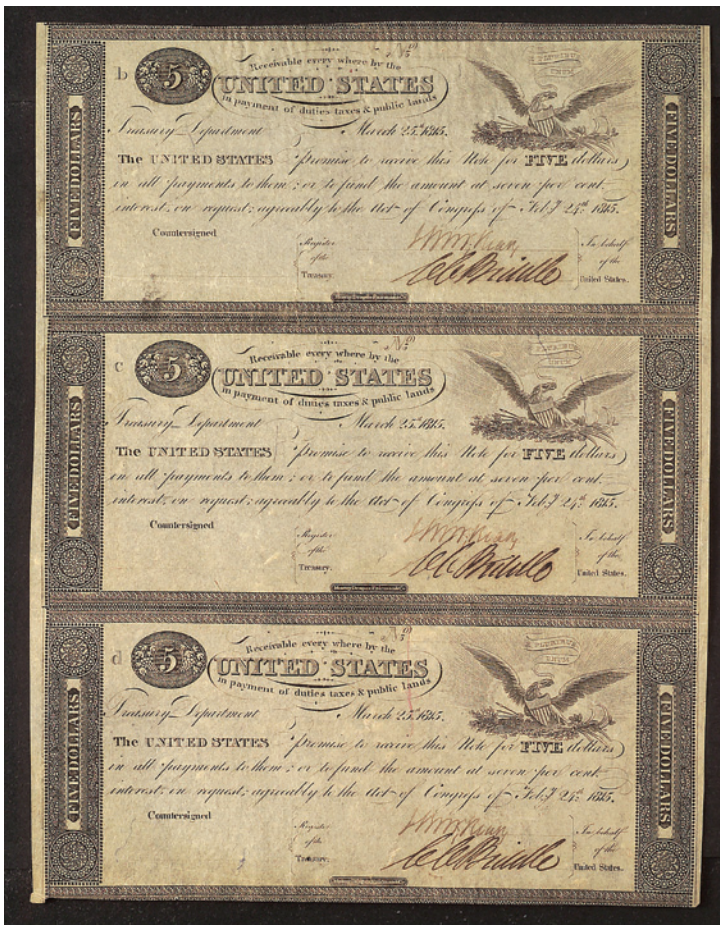 b
5
No
Receivable every where by the
UNITED STATES
in payment of duties taxes & public lands
E PLURIBUS
UNUM
Treasury Department March 25th 1815.
The UNITED STATES Promise to receive this Note for FIVE dollars
in all payments to them; or to fund the amount at seven per cent.
interest, on request; agreeably to the Act of Congress of Feby 24th 1815.
Countersigned
Register
of the
Treasury.
C C Biddle
In behalf
of the
United States.
FIVE DOLLARS
FIVE DOLLARS
c
5
No
Receivable every where by the
UNITED STATES
in payment of duties taxes & public lands
E PLURIBUS
UNUM
Treasury Department March 25th 1815.
The UNITED STATES Promise to receive this Note for FIVE dollars
in all payments to them; or to fund the amount at seven per cent.
interest, on request; agreeably to the Act of Congress of Feby 24th 1815.
Countersigned
Register
of the
Treasury.
C C Biddle
In behalf
of the
United States.
FIVE DOLLARS
FIVE DOLLARS
d
5
No
Receivable every where by the
UNITED STATES
in payment of duties taxes & public lands
E PLURIBUS
UNUM
Treasury Department March 25th 1815.
The UNITED STATES Promise to receive this Note for FIVE dollars
in all payments to them; or to fund the amount at seven per cent.
interest, on request; agreeably to the Act of Congress of Feby 24th 1815.
Countersigned
Register
of the
Treasury.
C C Biddle
In behalf
of the
United States.
FIVE DOLLARS
FIVE DOLLARS